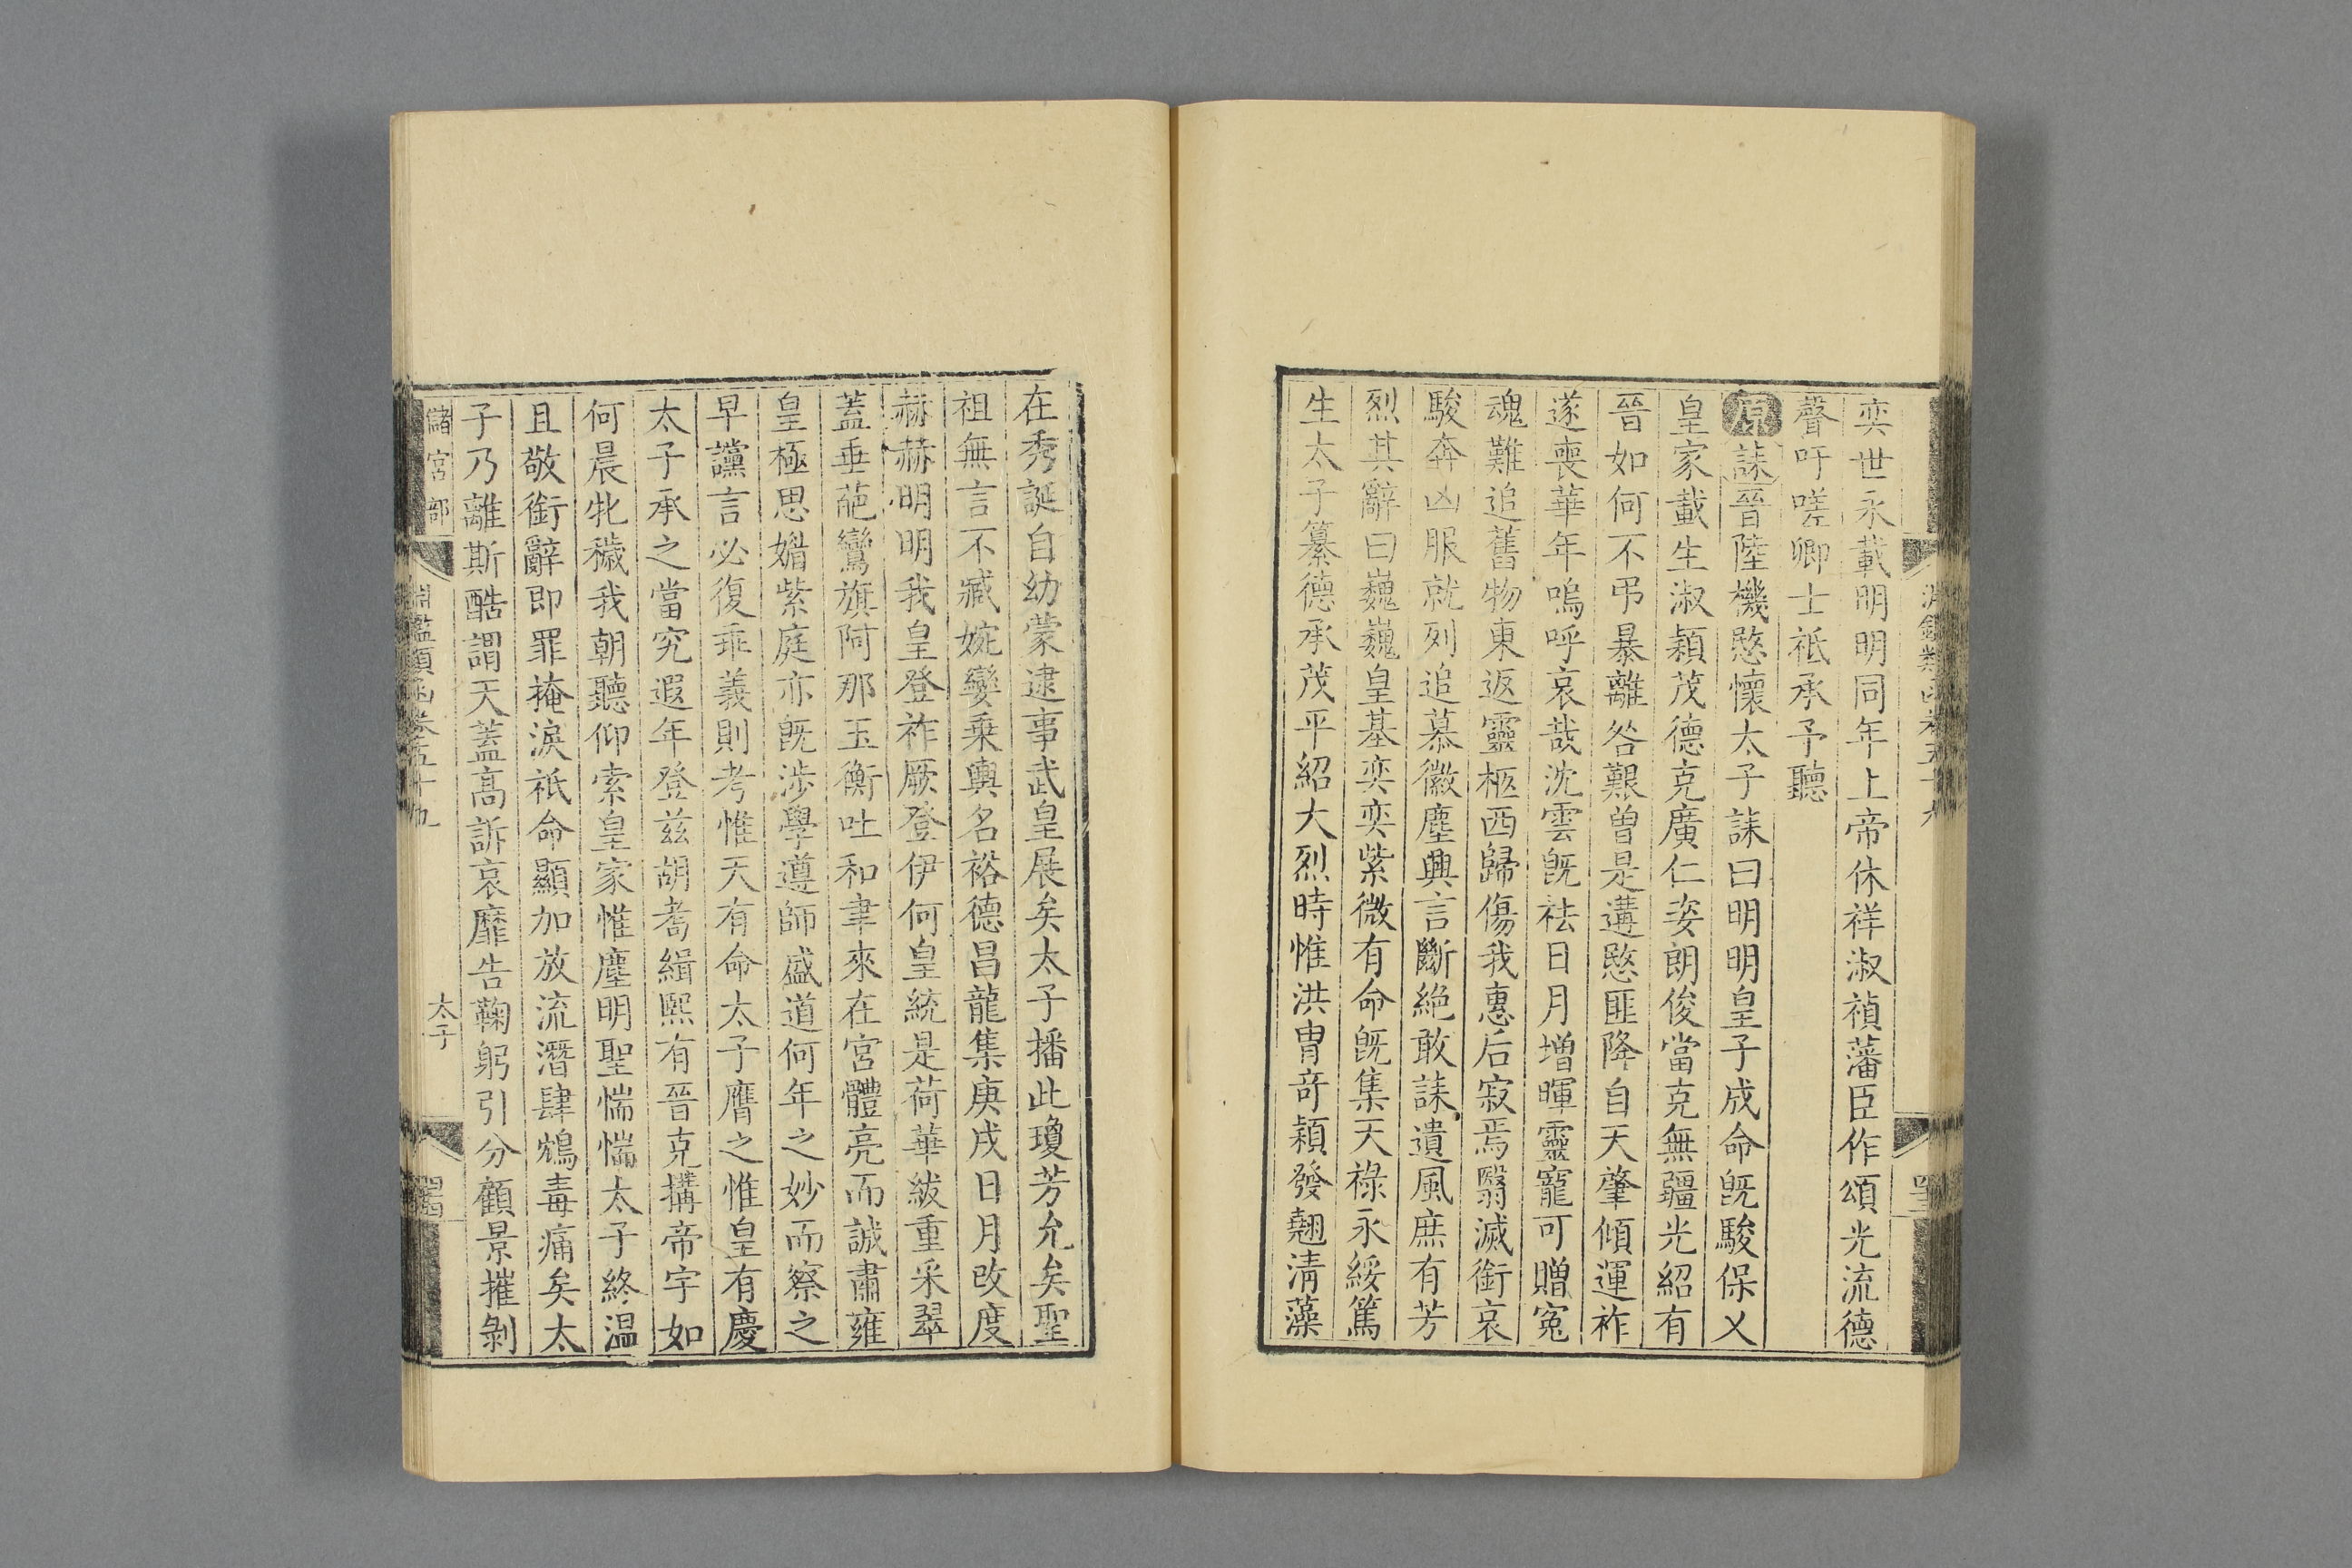 奕世永載明明同年上帝休祥淑禎藩臣作頌光流德
聲吁嗟卿士祇承予聽
原誄晉陸機愍懷太子誄曰明明皇子成命既駿保乂
皇家載生淑穎茂德克廣仁姿朗俊當克無疆光紹有
晉如何不弔暴離咎艱曾是遘愍匪降自天肇傾運祚
遂喪華年嗚呼哀哉沈雲既祛日月增暉靈寵可贈冤
魂難追舊物東返靈柩西歸傷我惠后寂焉翳滅銜哀
駿奔凶服就列追慕徽塵興言斷絶敢誄遺風庶有芳
烈其辭曰巍巍皇基奕奕紫微有命既集天祿永綏篤
生太子纂德承茂平紹大烈時惟洪胄奇穎發翹清藻
在秀誕自幼蒙逮事武皇展矣太子播此瓊芳允矣聖
祖無言不臧婉孌乗輿名裕德昌龍集庚戌日月改度
赫赫明明我皇登祚厥登伊何皇統是荷華紱重采翠
蓋垂葩鸞旗阿那玉衡吐和聿來在宮體亮而誠肅雍
皇極思媚紫庭亦既涉學遵師盛道何年之妙而察之
早讜言必復乖義則考惟天有命太子膺之惟皇有慶
太子承之當究遐年登兹胡耉緝熙有晉克搆帝宇如
何晨牝穢我朝聽仰索皇家惟塵明聖惴惴太子終温
且敬銜辭即罪掩淚祇命顯加放流潛肆鴆毒痛矣太
子乃離斯酷謂天蓋高訴哀靡告鞠躬引分顧景摧剝
儲宮部
淵鑑類函卷五十九
太子